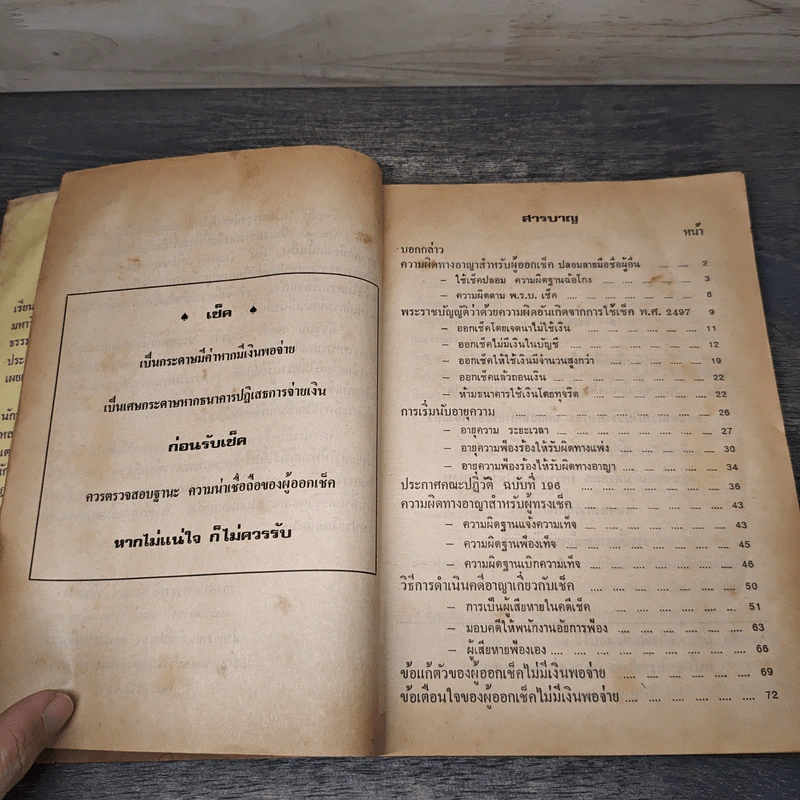 เรียน
ธรรม
ประ
♠ เช็ค ♠
เป็นกระดาษมีค่าหากมีเงินพอจ่าย
เป็นเศษกระดาษหากธนาคารปฏิเสธการจ่ายเงิน
ก่อนรับเช็ค
ควรตรวจสอบฐานะ ความน่าเชื่อถือของผู้ออกเช็ค
หากไม่แน่ใจ ก็ไม่ควรรับ
สารบาญ
หน้า
บอกกล่าว
ความผิดทางอาญาสำหรับผู้ออกเช็ค ปลอมลายมือชื่อผู้อื่น .... .... 2
– ใช้เช็คปลอม ความผิดฐานฉ้อโกง .... .... .... .... 3
– ความผิดตาม พ.ร.บ. เช็ค .... .... .... .... .... 8
พระราชบัญญัติว่าด้วยความผิดอันเกิดจากการใช้เช็ค พ.ศ. 2497 9
– ออกเช็คโดยเจตนาไม่ใช้เงิน .... .... .... .... 11
– ออกเช็คไม่มีเงินในบัญชี .... .... .... .... .... 12
– ออกเช็คให้ใช้เงินมีจำนวนสูงกว่า .... .... .... .... 19
– ออกเช็คแล้วถอนเงิน .... .... .... .... .... 22
– ห้ามธนาคารใช้เงินโดยทุจริต .... .... .... .... 22
การเริ่มนับอายุความ .... .... .... .... .... .... 26
– อายุความ ระยะเวลา .... .... .... .... .... 27
– อายุความฟ้องร้องให้รับผิดทางแพ่ง .... .... .... .... 30
– อายุความฟ้องร้องให้รับผิดทางอาญา .... .... .... .... 34
ประกาศคณะปฏิวัติ ฉบับที่ 196 .... .... .... .... .... 36
ความผิดทางอาญาสำหรับผู้ทรงเช็ค .... .... .... .... .... 43
– ความผิดฐานแจ้งความเท็จ .... .... .... .... .... 43
– ความผิดฐานฟ้องเท็จ .... .... .... .... .... 45
– ความผิดฐานเบิกความเท็จ .... .... .... .... .... 46
วิธีการดำเนินคดีอาญาเกี่ยวกับเช็ค .... .... .... .... 50
– การเป็นผู้เสียหายในคดีเช็ค .... .... .... .... 51
– มอบคดีให้พนักงานอัยการฟ้อง .... .... .... .... 63
– ผู้เสียหายฟ้องเอง .... .... .... .... .... 66
ข้อแก้ตัวของผู้ออกเช็คไม่มีเงินพอจ่าย .... .... .... .... 69
ข้อเตือนใจของผู้ออกเช็คไม่มีเงินพอจ่าย .... .... .... .... 72